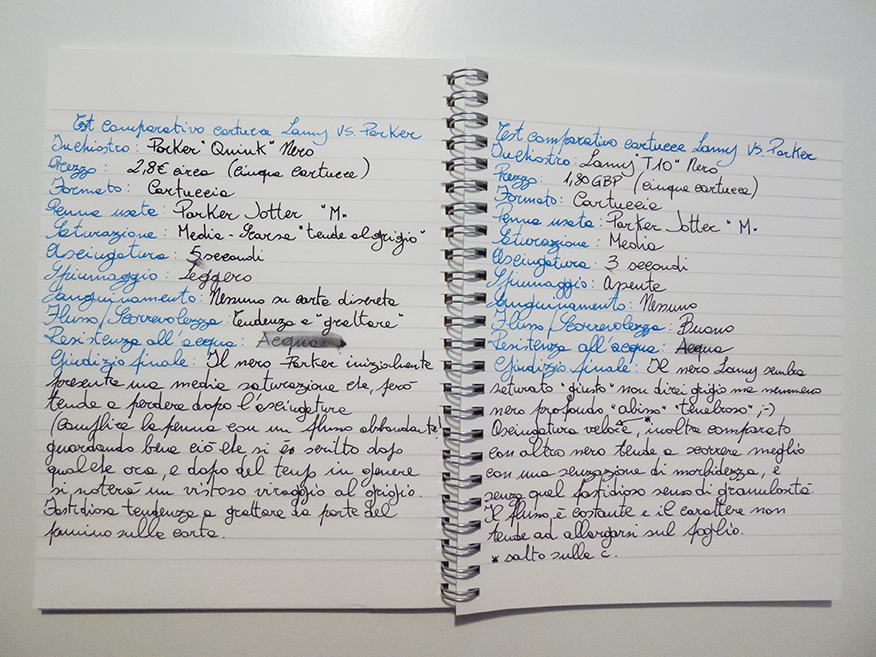 Test comparativo cartucce Lamy VS. Parker
Inchiostro: Parker "Quink" Nero
Prezzo: 2,8€ circa (cinque cartucce)
Formato: Cartuccia
Penna usata: Parker Jotter "M"
Saturazione: Media - Scarsa "tende al grigio"
Asciugatura: 5 secondi
Spiumaggio: Leggero
Sanguinamento: Nessuno su carta discreta
Flusso/Scorrevolezza: Tendenza a "grattare"
Resistenza all'acqua: Acqua
Giudizio finale: Il nero Parker inizialmente
presenta una media saturazione che, però
tende a perdere dopo l'asciugatura
(complice la penna con un flusso abbondante)
guardando bene ciò che si è scritto dopo
qualche ora, e dopo del tempo in genere
si noterà un vistoso viraggio al grigio.
Fastidiosa tendenza a grattare da parte del
pennino sulla carta.
Test comparativo cartucce Lamy VS. Parker
Inchiostro: Lamy "T10" Nero
Prezzo: 1,80 GBP (cinque cartucce)
Formato: Cartuccia
Penna usata: Parker Jotter "M"
Saturazione: Media
Asciugatura: 3 secondi
Spiumaggio: Assente
Sanguinamento: Nessuno
Flusso/Scorrevolezza: Buono
Resistenza all'acqua: Acqua
Giudizio finale: Il nero Lamy sembra
saturato "giusto" non direi grigio ma nemmeno
nero profondo "abisso" "tenebroso" ;-)
Asciugatura veloce,* inoltre comparato
con altro nero tende a scorrere meglio
con una sensazione di morbidezza, e
senza quel fastidioso senso di granulosità.
Il flusso è costante e il carattere non
tende ad allargarsi sul foglio.
* salto sulla c.